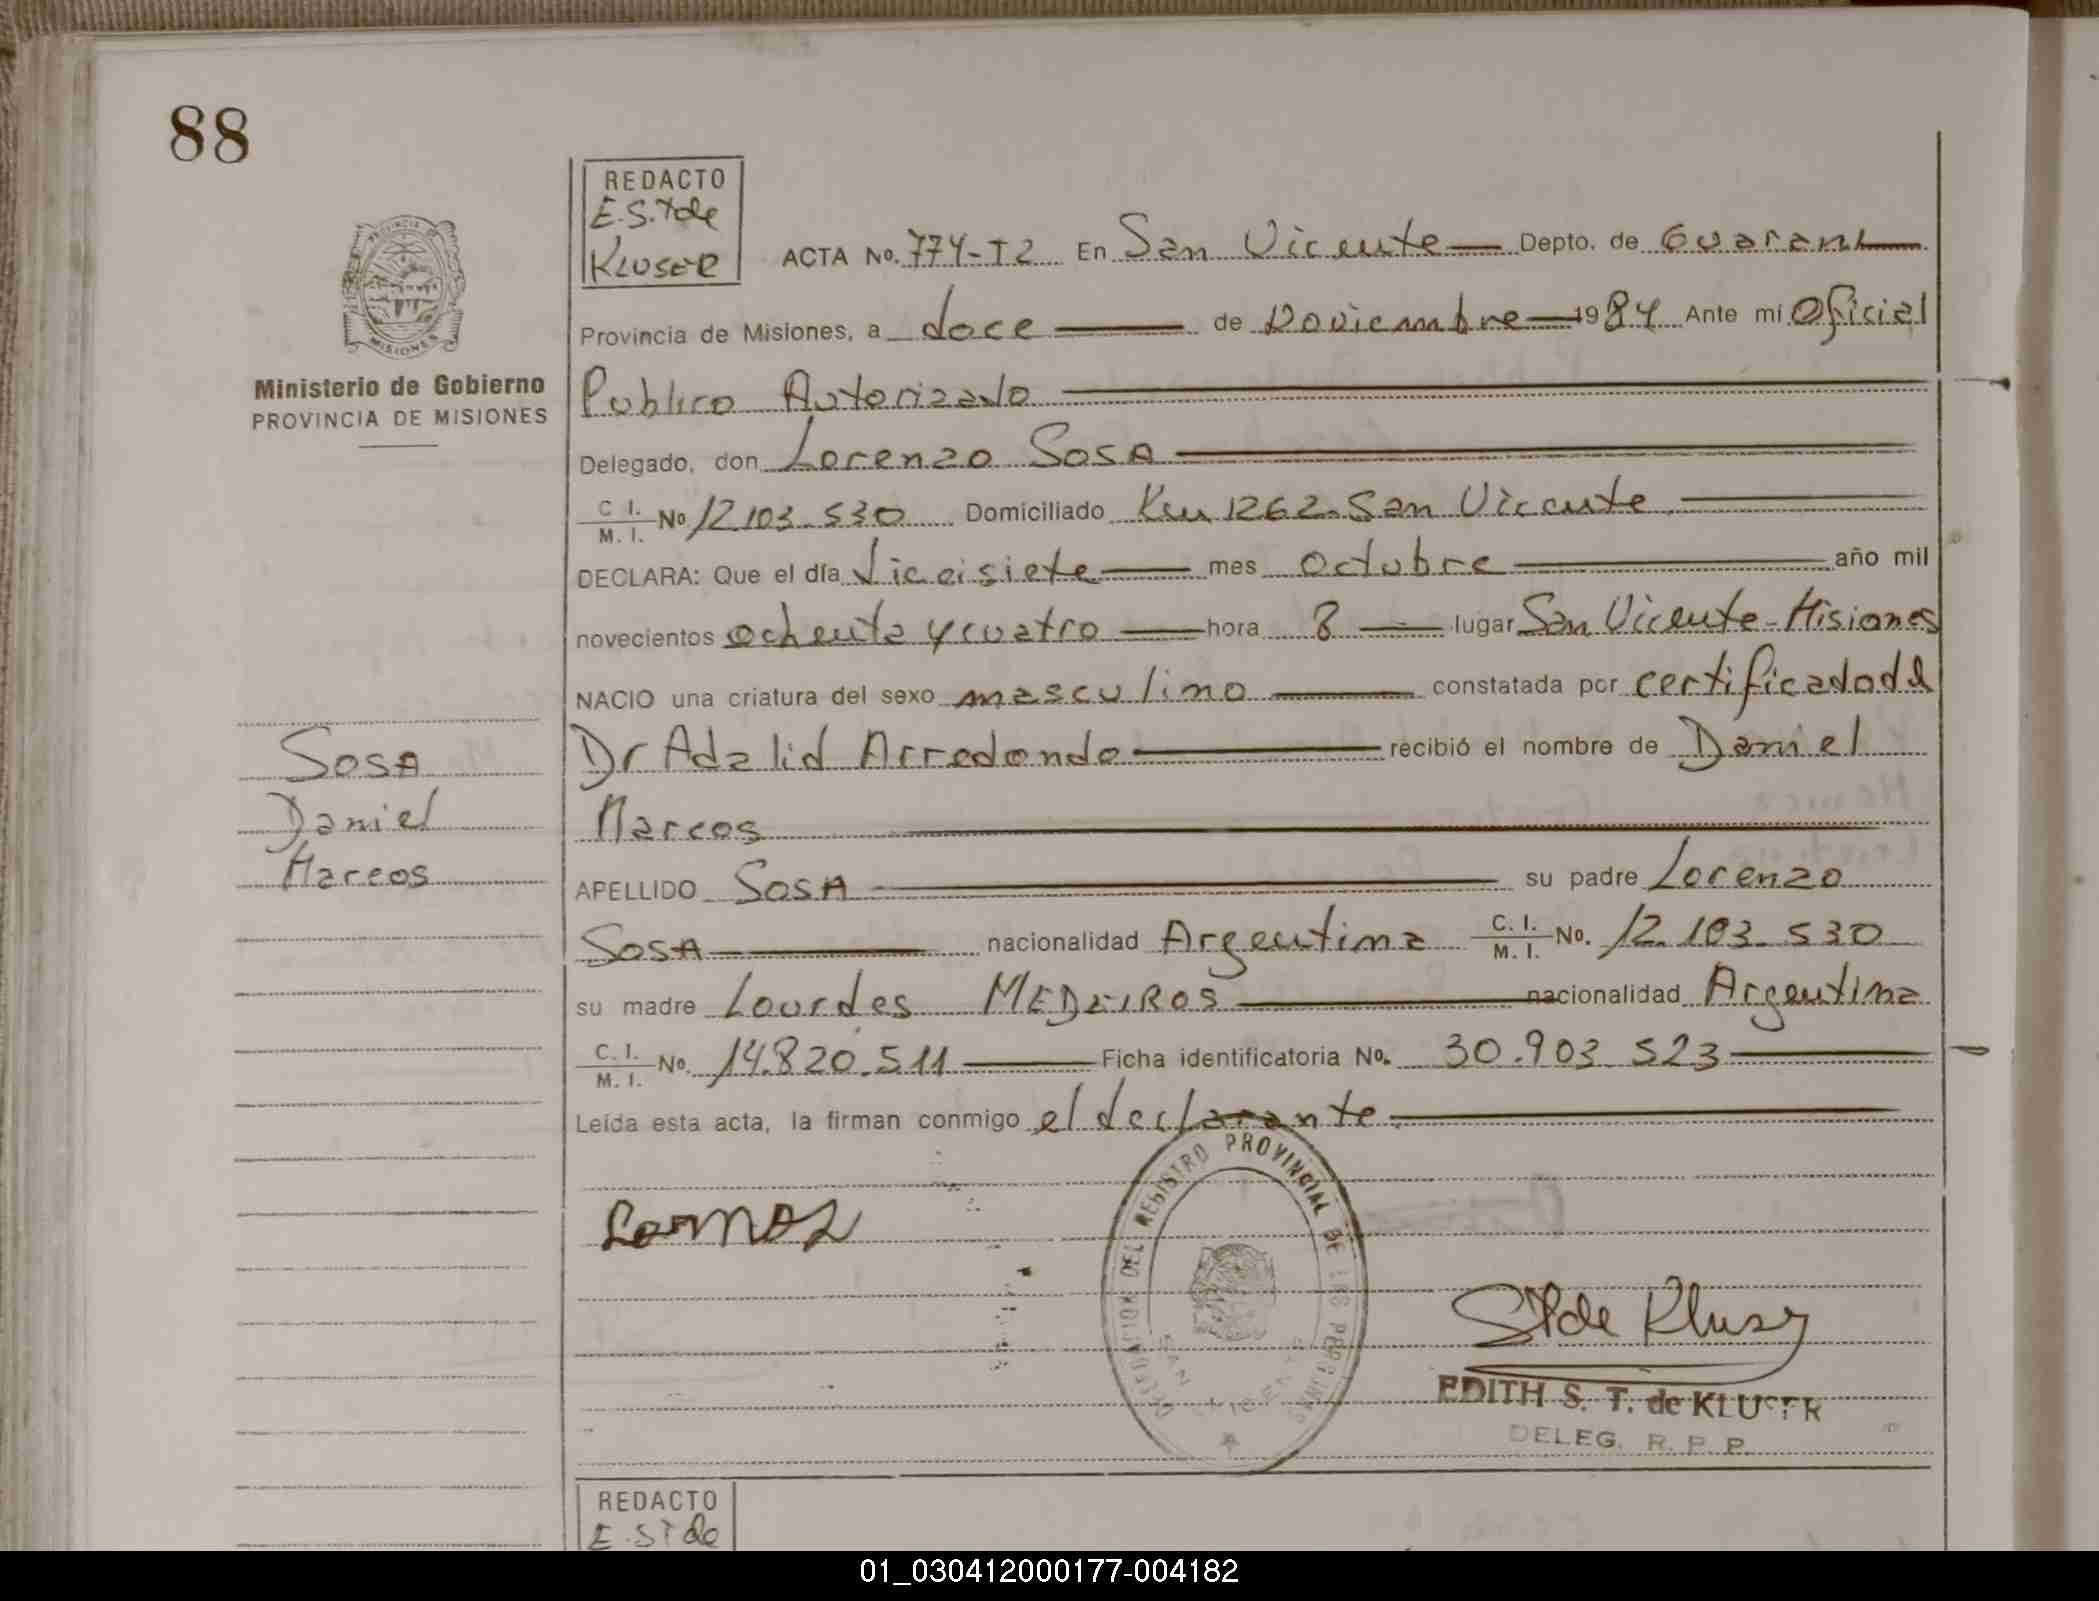 88
REDACTO
E.S.T de
KLUSER
ACTA No. 774-T2 En San Vicente Depto. de Guarani
Provincia de Misiones, a doce de Noviembre 1984 Ante mi Oficial
Publico Autorizado
Ministerio de Gobierno
PROVINCIA DE MISIONES
Delegado, don Lorenzo SOSA
C. I.
M. I. No 12.103.530 Domiciliado Km 1262-San Vicente
DECLARA: Que el día Vieisiete mes octubre año mil
novecientos ochenta y cuatro hora 8 lugar San Vicente-Misiones
NACIO una criatura del sexo masculino constatada por certificado del
Dr Adalid Arredondo recibió el nombre de Daniel
Marcos
SOSA
Daniel
Marcos
APELLIDO SOSA su padre Lorenzo
SOSA nacionalidad Argentina C. I. M. I. No. 12.103.530
su madre Lourdes MEDEIROS nacionalidad Argentina
C. I.
M. I. No. 14.820.511 Ficha identificatoria No. 30.903.523
Leída esta acta, la firman conmigo el declarante
DELEGACION DEL REGISTRO PROVINCIAL DE LAS PERSONAS
SAN VICENTE
STde Kluser
EDITH S. T. de KLUSER
DELEG. R. P. P.
REDACTO
E.S T de
01_030412000177-004182